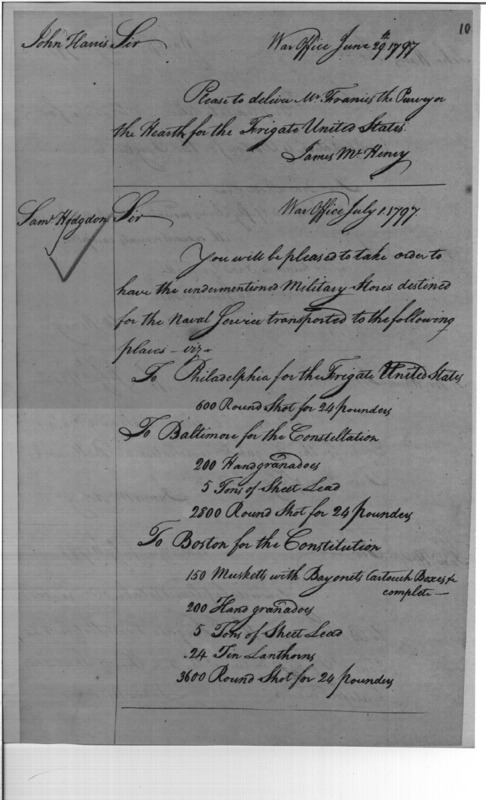 10
John Harris Sir War Office June 29th 1797
Please to deliver Mr. Francis the Purveyor
the Hearth for the Frigate United States.
James McHenry
Saml Hodgdon Sir War Office July 1. 1797.
You will be pleased to take order to
have the undermentioned Military Stores destined
for the Naval Service transported to the following
places – viz –
To Philadelphia for the Frigate United States
600 Round Shot for 24 pounders
To Baltimore for the Constellation
200 Handgranadoes
5 Tons of Sheet Lead
2800 Round Shot for 24 pounders
To Boston for the Constitution
150 Musketts with Bayonets Cartouch Boxes &
complete –
200 Hand granadoes
5 Tons of Sheet Lead
24 Tin Lanthorns
3600 Round Shot for 24 pounders